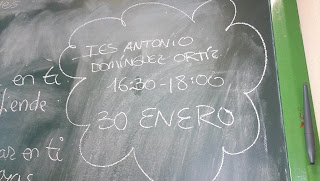 es
IES ANTONIO
DOMÍNGUEZ ORTIZ
en ti
16:30-18:00
ende:
30 ENERO
ar en ti